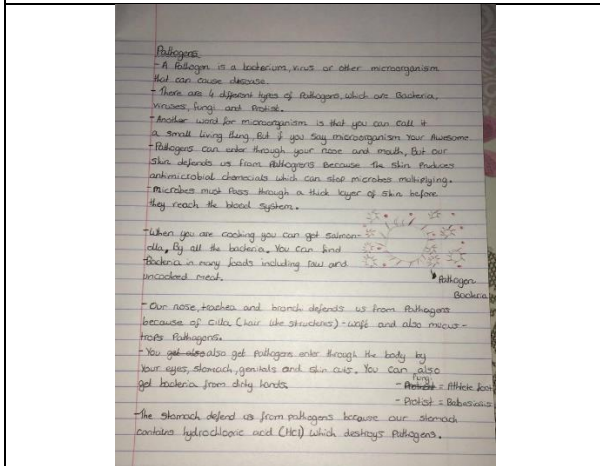 Pathogens
- A Pathogen is a bacterium, virus or other microorganism
that can cause disease.
- There are 4 different types of Pathogens, which are Bacteria,
viruses, fungi and Protist.
- Another word for microorganism is that you can call it
a small living thing, But if you say microorganism Your Awesome
- Pathogens can enter through your nose and mouth, But our
skin defends us from Pathogens Because The skin Produces
antimicrobial chemicals which can stop microbes multiplying.
- microbes must Pass through a thick layer of skin before
they reach the blood system.
- When you are cooking you can get salmon-
ella, By all the bacteria. You can find
Bacteria in many foods including raw and
uncooked meat.
Pathogen
Bacteria
- Our nose, trachea and bronchi defends us from Pathogens
because of cilia (hair like structures) - waft and also mucus -
traps Pathogens.
- You get also also get pathogens enter through the body by
your eyes, stomach, genitals and skin cuts. You can also
get bacteria from dirty hands.
Fungi
- Protist = Athlete foot
- Protist = Babesiosis
The stomach defend us from pathogens because our stomach
contains hydrochloric acid (HCl) which destroys Pathogens.